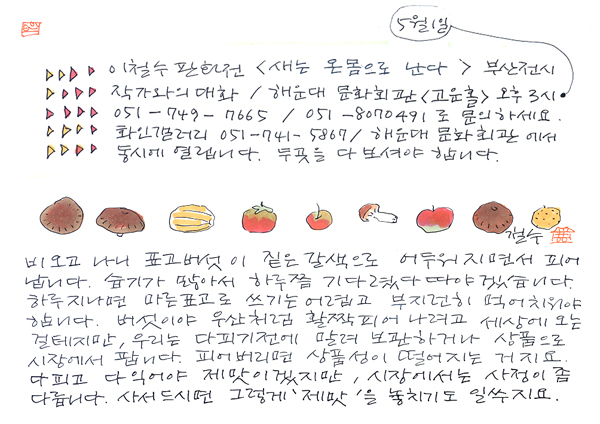 5월1일
이철수 판화전 <새는 온몸으로 난다> 부산전시
작가와의 대화 / 해운대 문화회관<고운홀> 오후3시
051-749-7665 / 051-8070491 로 문의하세요.
화인갤러리 051-741-5867/ 해운대 문화회관 에서
동시에 열립니다. 두곳을 다 보셔야 합니다.
철수
비오고 나니 표고버섯 이 짙은 갈색으로 어두워지면서 피어
납니다. 습기가 많아서 하루쯤 기다렸다 따야겠습니다.
하루지나면 마른표고로 쓰기는 어렵고 부지런히 먹어치워야
합니다. 버섯이야 우산처럼 활짝피어 나려고 세상에 오는
걸테지만, 우리는 다피기전에 말려 보관하거나 상품으로
시장에서 팝니다. 피어버리면 상품성이 떨어지는 거지요.
다 피고 다 익어야 제맛이겠지만, 시장에서는 사정이 좀
다릅니다. 사서드시면 그렇게 '제맛'을 놓치기도 일쑤지요.